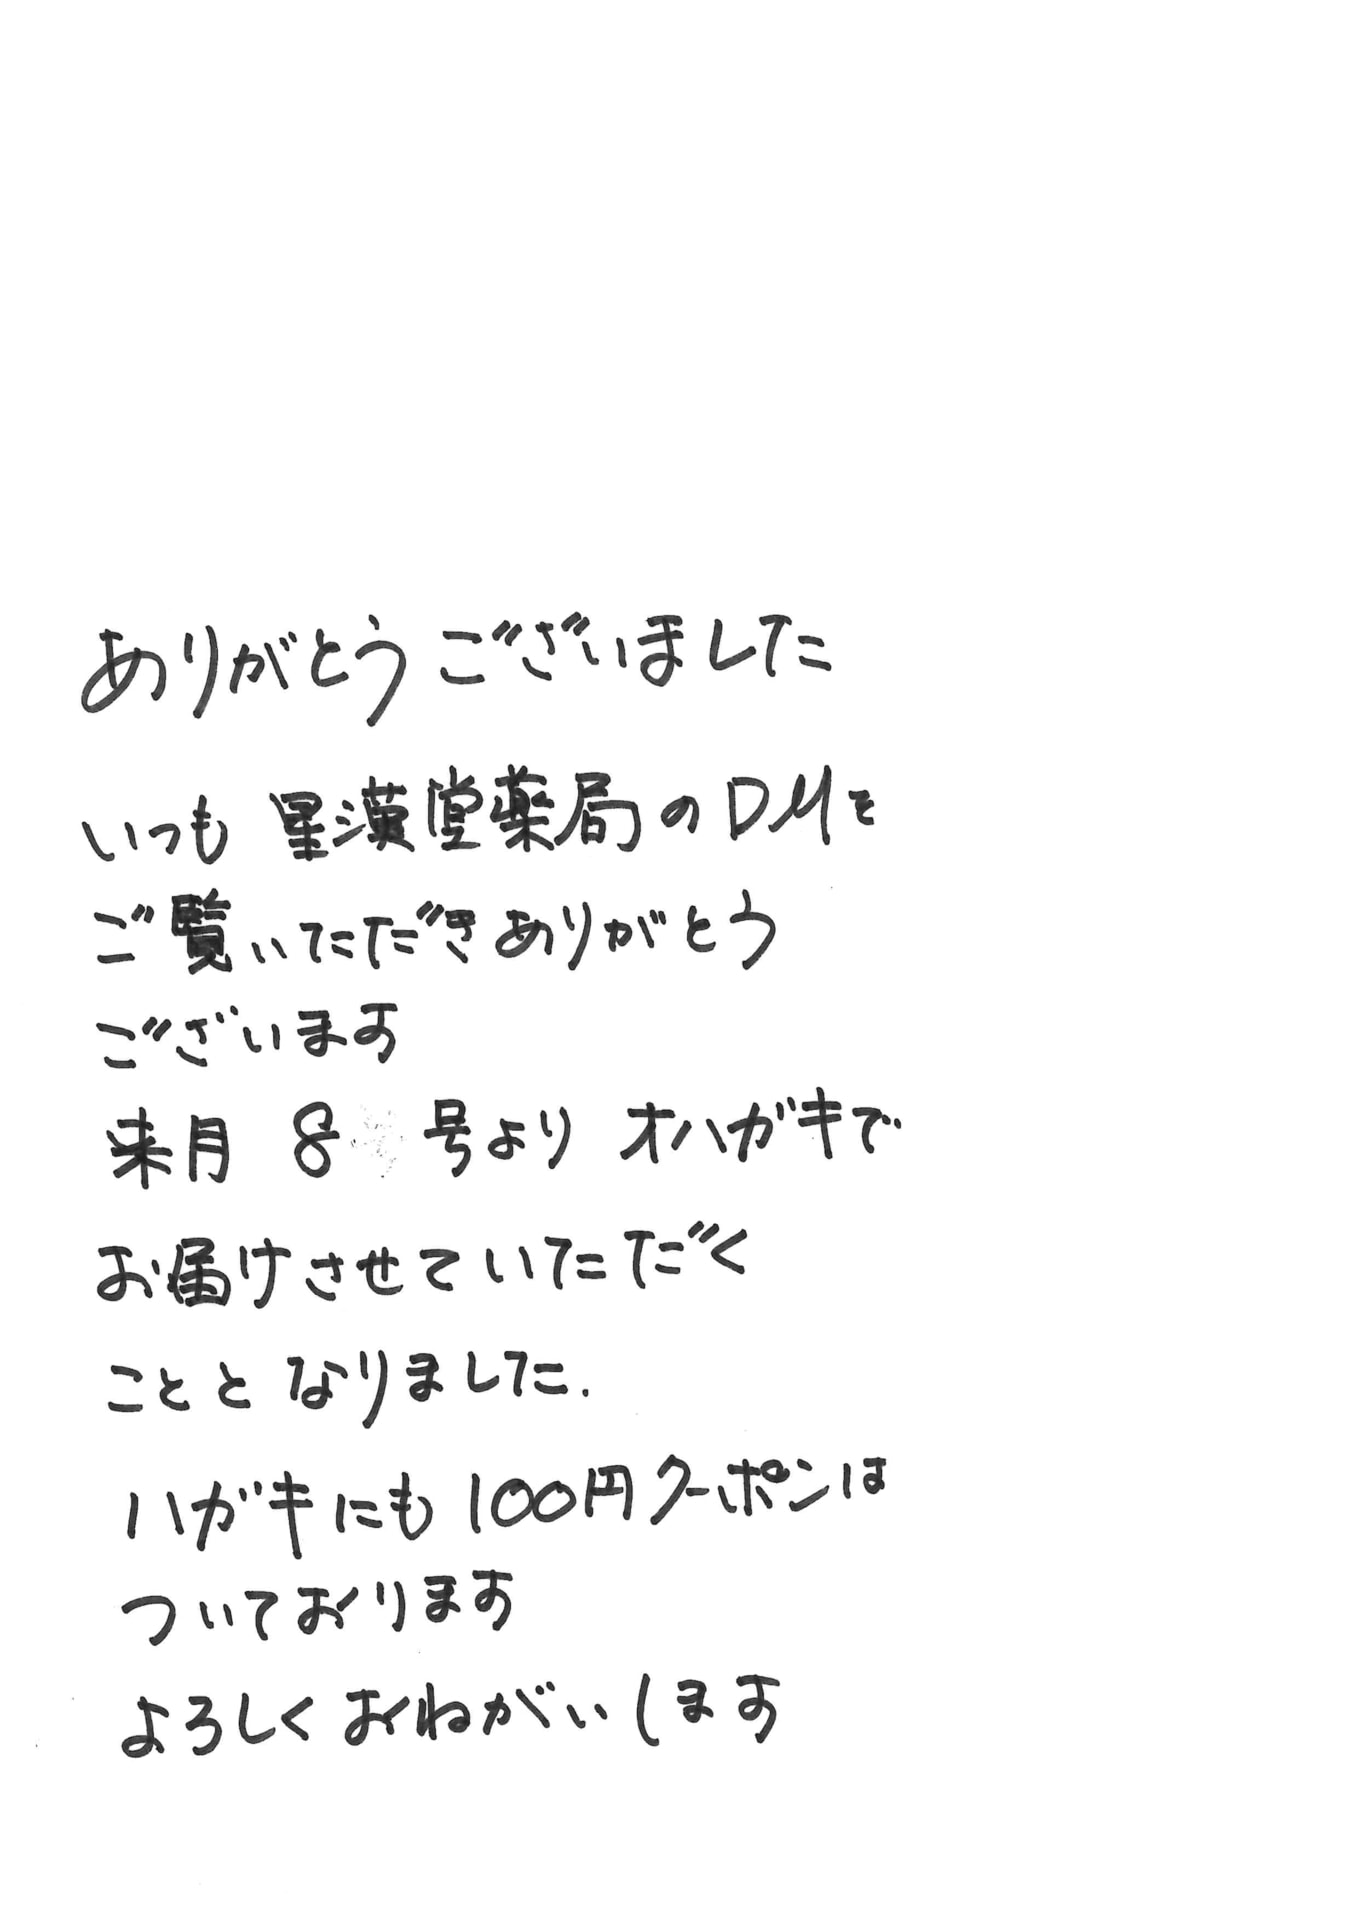 ありがとうございました
いつも 星漢堂薬局のDMを
ご覧いただきありがとう
ございます
来月 8 号より オハガキで
お届けさせていただく
こととなりました.
ハガキにも 100円クーポンは
ついております
よろしくおねがいします